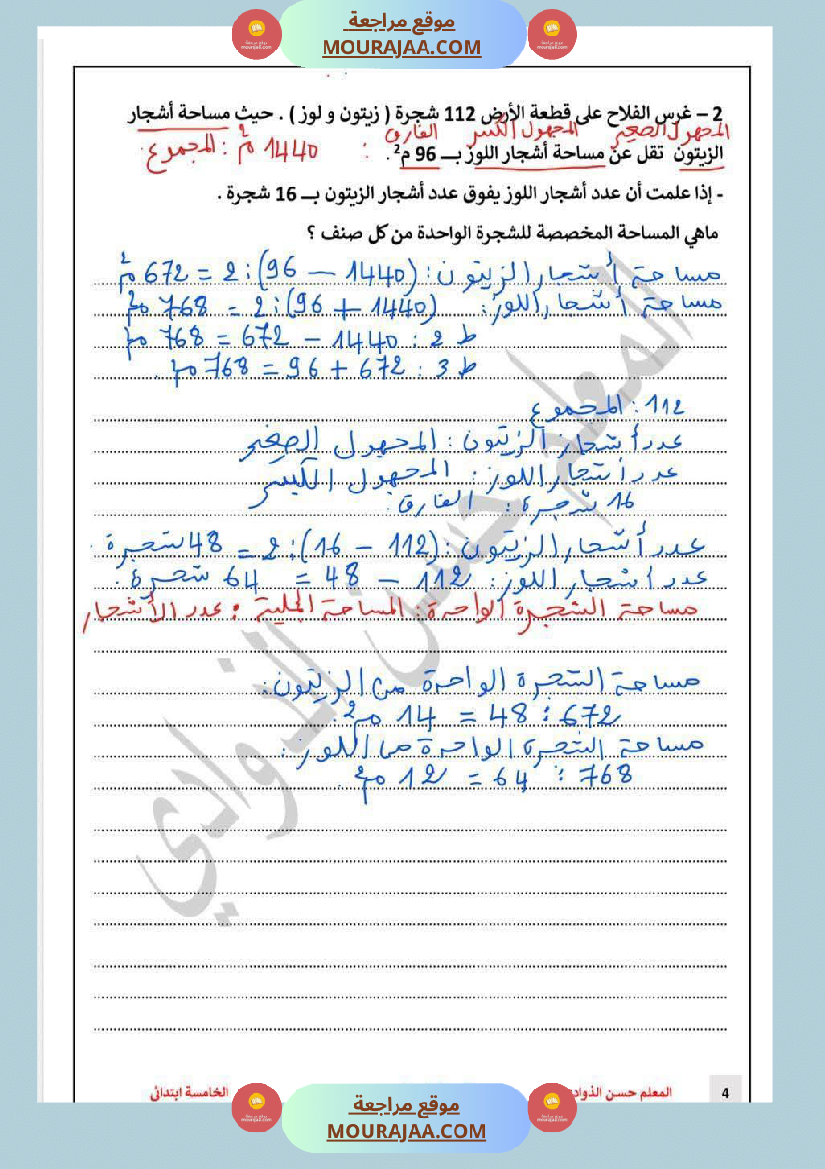 موقع مراجعة
MOURAJAA.COM
2 – غرس الفلاح على قطعة الأرض 112 شجرة ( زيتون و لوز ) . حيث مساحة أشجار
المجهول الصغير المجهول الكبير الفارق : 1440 م² : المجموع
الزيتون تقل عن مساحة أشجار اللوز بــ 96 م² .
- إذا علمت أن عدد أشجار اللوز يفوق عدد أشجار الزيتون بــ 16 شجرة .
ماهي المساحة المخصصة للشجرة الواحدة من كل صنف ؟
مساحة أشجار الزيتون : (1440 – 96) : 2 = 672 م²
مساحة أشجار اللوز : (1440 + 96) : 2 = 768 م²
ط 2 : 1440 – 672 = 768 م²
ط 3 : 672 + 96 = 768 م² .
112 : المجموع
عدد أشجار الزيتون : المجهول الصغير
عدد أشجار اللوز : المجهول الكبير
16 شجرة : الفارق .
عدد أشجار الزيتون : (112 – 16) : 2 = 48 شجرة .
عدد أشجار اللوز : 112 – 48 = 64 شجرة .
مساحة الشجرة الواحدة : المساحة الجملية : عدد الأشجار
مساحة الشجرة الواحدة من الزيتون :
672 : 48 = 14 م² .
مساحة الشجرة الواحدة من اللوز :
768 : 64 = 12 م² .
المعلم حسن الذوادي
4
المعلم حسن الذوادي
الخامسة ابتدائي
موقع مراجعة
MOURAJAA.COM